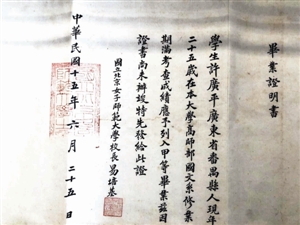 畢業證明書
學生許廣平廣東省番禺縣人現年
二十五歲在本大學高師部國文系修業
期滿考查成績應予列入甲等畢業茲因
證書尚未辦竣特先發給此證
國立北京女子師範大學校長易培基
中華民國十五年六月二十五日